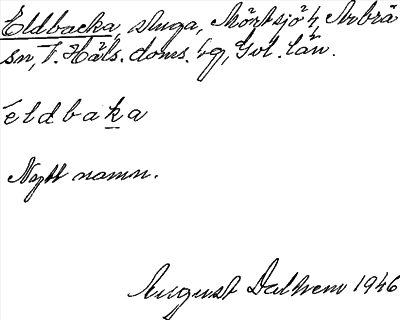 Eldbacka, stuga, Mörtsjö 4, Arbrå
sn, V. Häls. doms. hg, Gvl. län.
éldbaka
Nytt namn.
August Dalhem 1946